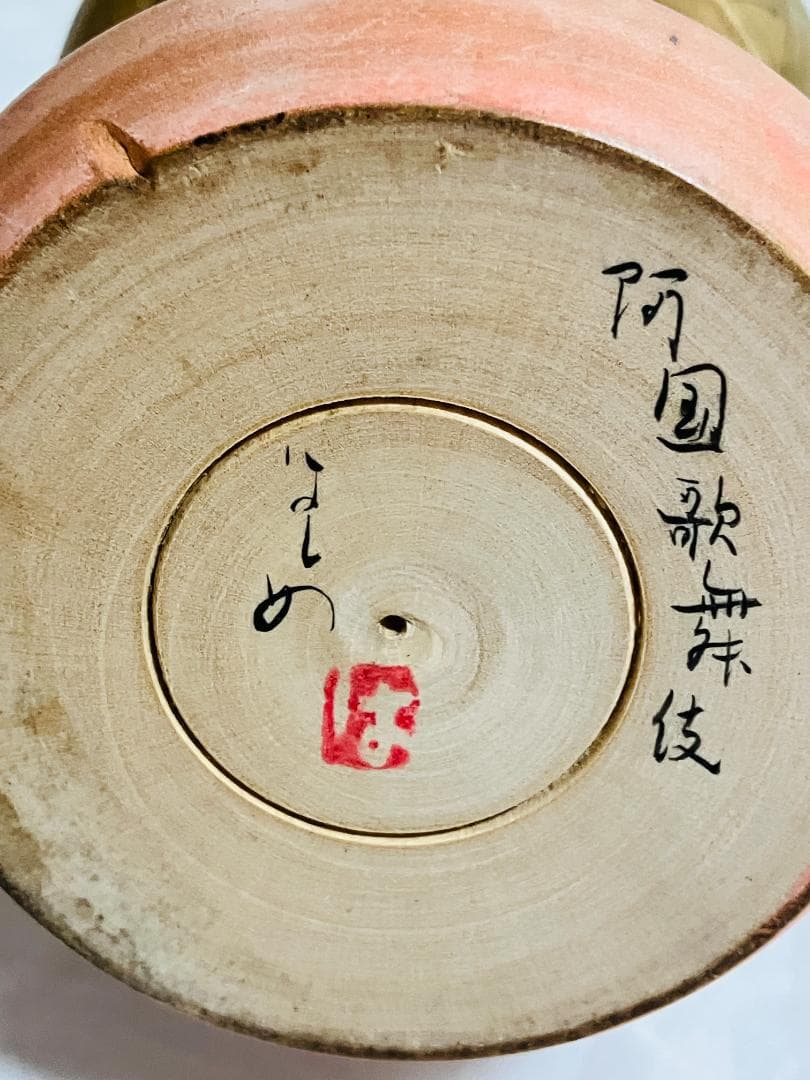 阿国歌舞伎
はじめ